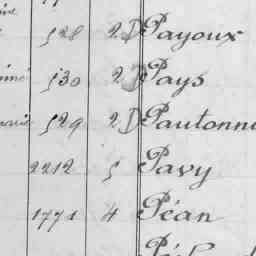 528 2 D Payoux
530 2 D Pays
529 2 D Pautonn
2212 5 Pavy
1771 4 Péan